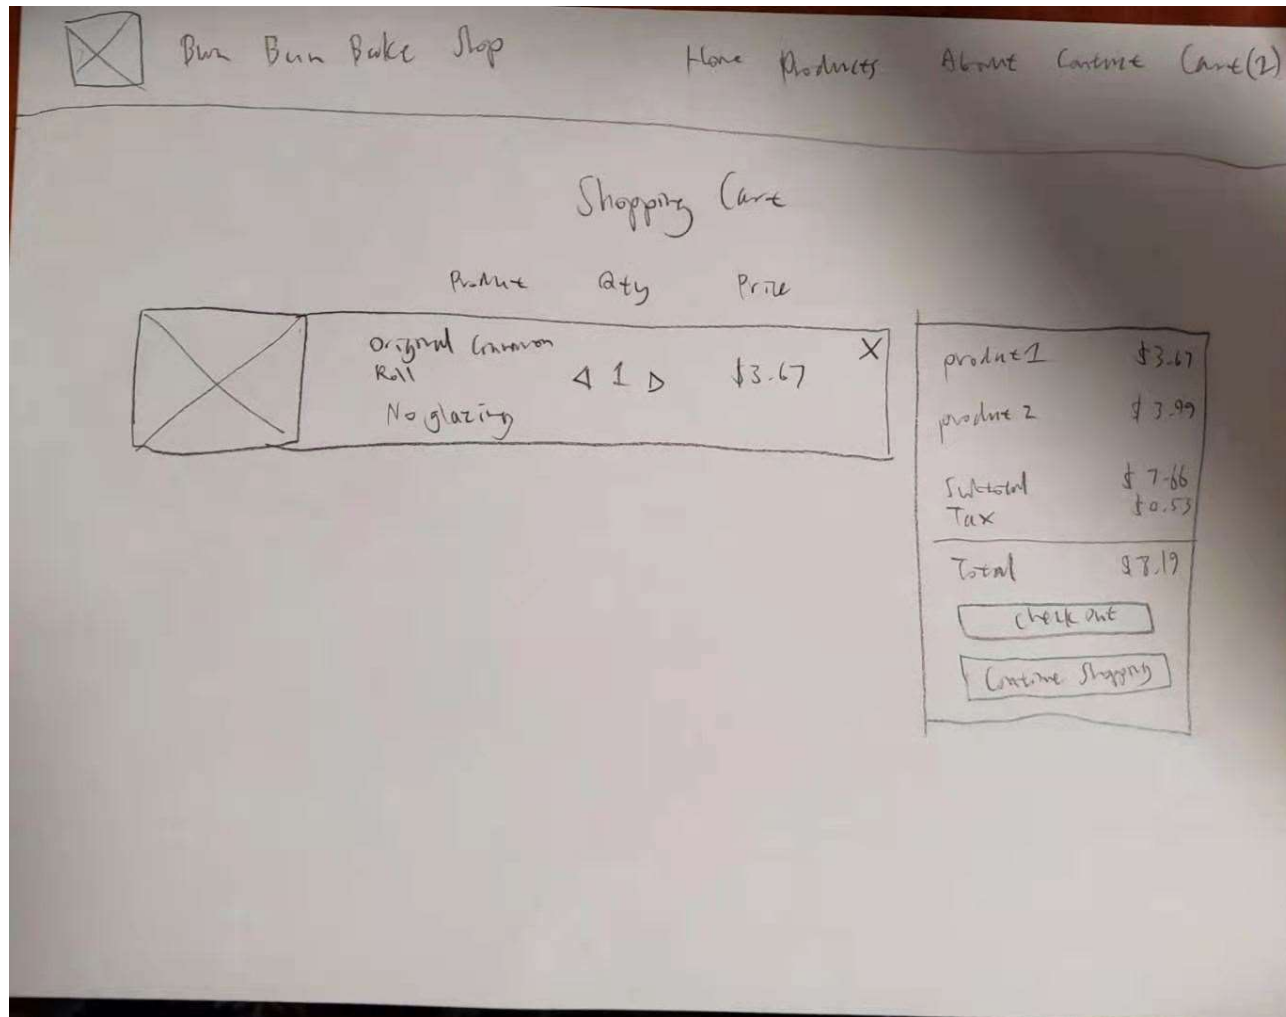 Bun Bun Bake Shop
Home Products About Contact Cart(2)
Shopping Cart
Product Qty Price
Original Cinnamon
Roll
1 $3.67
X
No glazing
product 1 $3.67
product 2 $3.99
Subtotal $7.66
Tax $0.53
Total $8.19
Check out
Continue Shopping